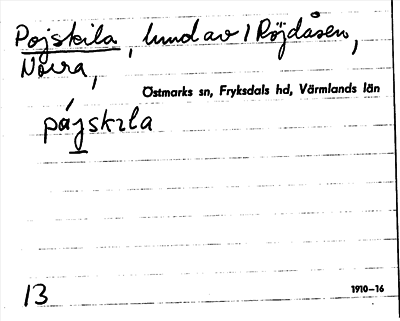 Pojskila, lund av 1 Röjdåsen,
Norra,
Östmarks sn, Fryksdals hd, Värmlands län
pájskıla
13
1910–16